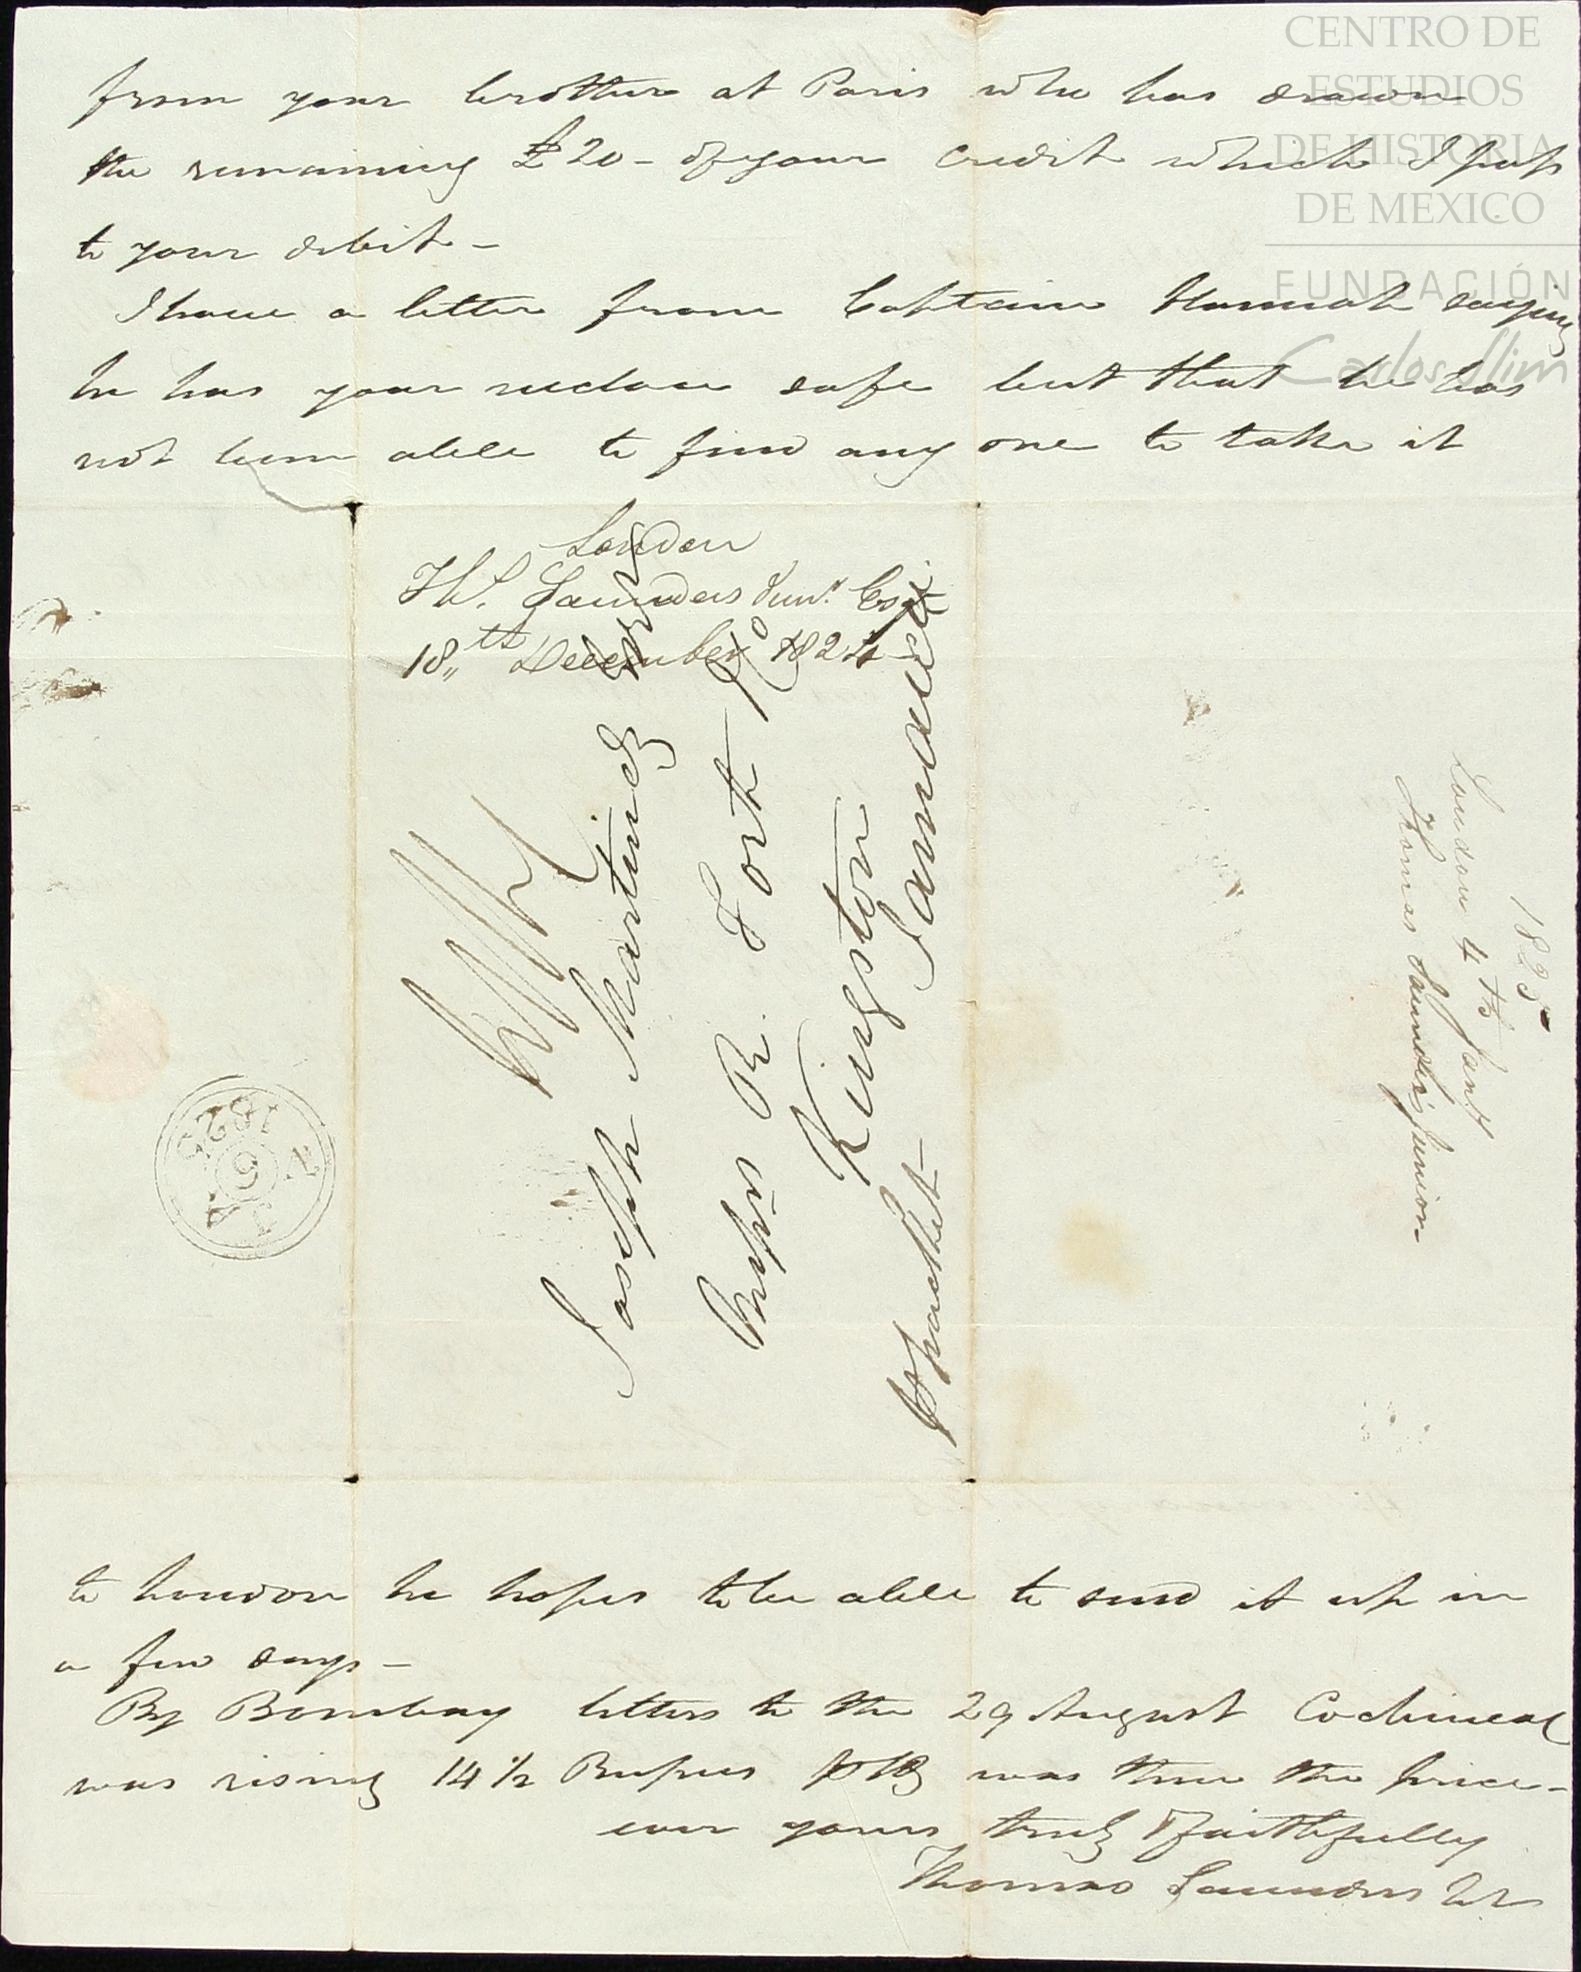 from your brother at Paris who has drawn
the remaining £20 - of your credit which I pass
to your debit -
I have a letter from Captain Hannah saying
he has your seclave safe but that he has
not been able to find any one to take it
London
Th. Saunders Junr. Esqr.
18,,th December 1824
Joseph Martinez Esqr
Rufus R. Fort &Co
Kingston
Jamaica
Ppacket -
1825
London 4th Jany
Thomas Saunders Junior
1825
6
to London he hopes to be able to send it up in
a few days -
By Bombay letters to the 29 August Cochineal
was rising 14 1/2 Rupees was then the price -
ever yours truly & faithfully
Thomas Saunders Jr
CENTRO DE
ESTUDIOS
DE HISTORIA
DE MEXICO
FUNDACIÓN
Carlos Slim